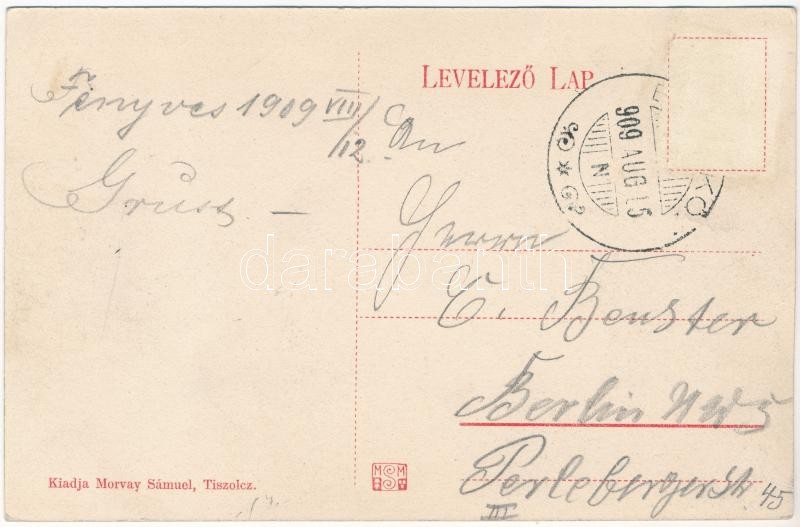 LEVELEZŐ LAP
Fenyves 1909 VIII/12.
Gruss —
909 AUG 15
N
KO
An
Herrn
E. Benster
Berlin NW5
Perlebergerstr 45
III
Kiadja Morvay Sámuel, Tiszolcz.
M M
darabanth